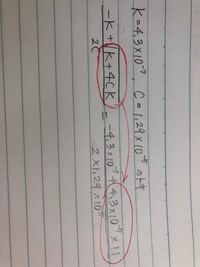 K=4.3×10⁻⁷ , C=1.29×10⁻⁵ のとき
-K+√K+4CK / 2C = -4.3×10⁻⁷+4.3×10⁻⁷×11 / 2×1.29×10⁻⁵